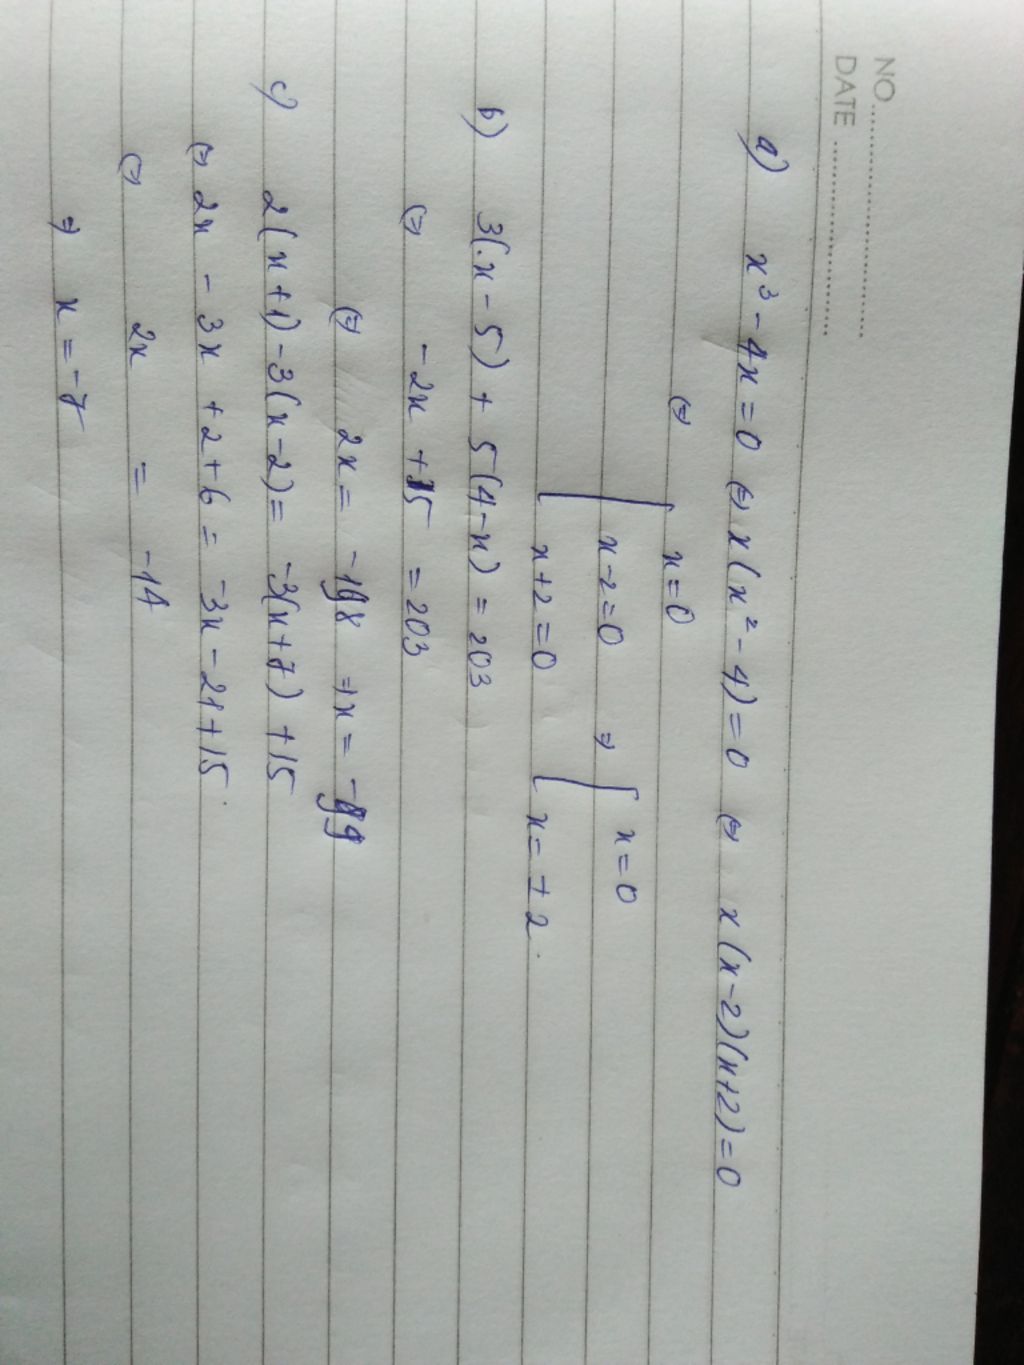 NO.
DATE
a) x³ - 4x = 0 (=) x(x² - 4) = 0 (=) x(x-2)(x+2) = 0
(=) [ x = 0
x-2 = 0 => [ x = 0
x+2 = 0 x = ±2.
b) 3(x - 5) + 5(4-x) = 203
(=) -2x + 5 = 203
(=) 2x = -198 => x = -99
c) 2(x+1) - 3(x-2) = -3(x+7) + 15
(=) 2x - 3x + 2 + 6 = -3x - 21 + 15.
(=) 2x = -14
=> x = -7